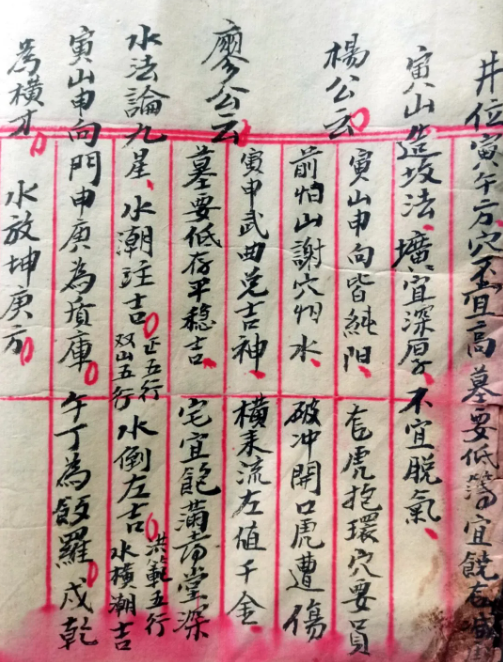 井位寅八午方穴不宜高墓要低蕩宜饒
寅山造坟法壙宜深厚不宜脱氣
楊公云寅山申向皆純阳 虎抱環穴要員
前怕山謝穴怕水 破冲開口虎遭傷
廖公云寅申武曲兑吉神 橫来流左值千金
墓要低存平穏吉 宅宜飽满堂深
水法論九星水潮吉正五行双山五行水倒左吉洪範五行水橫潮吉
寅山申向門申庚為庫午丁為飯羅戍乾
為橫才水放坤庚方